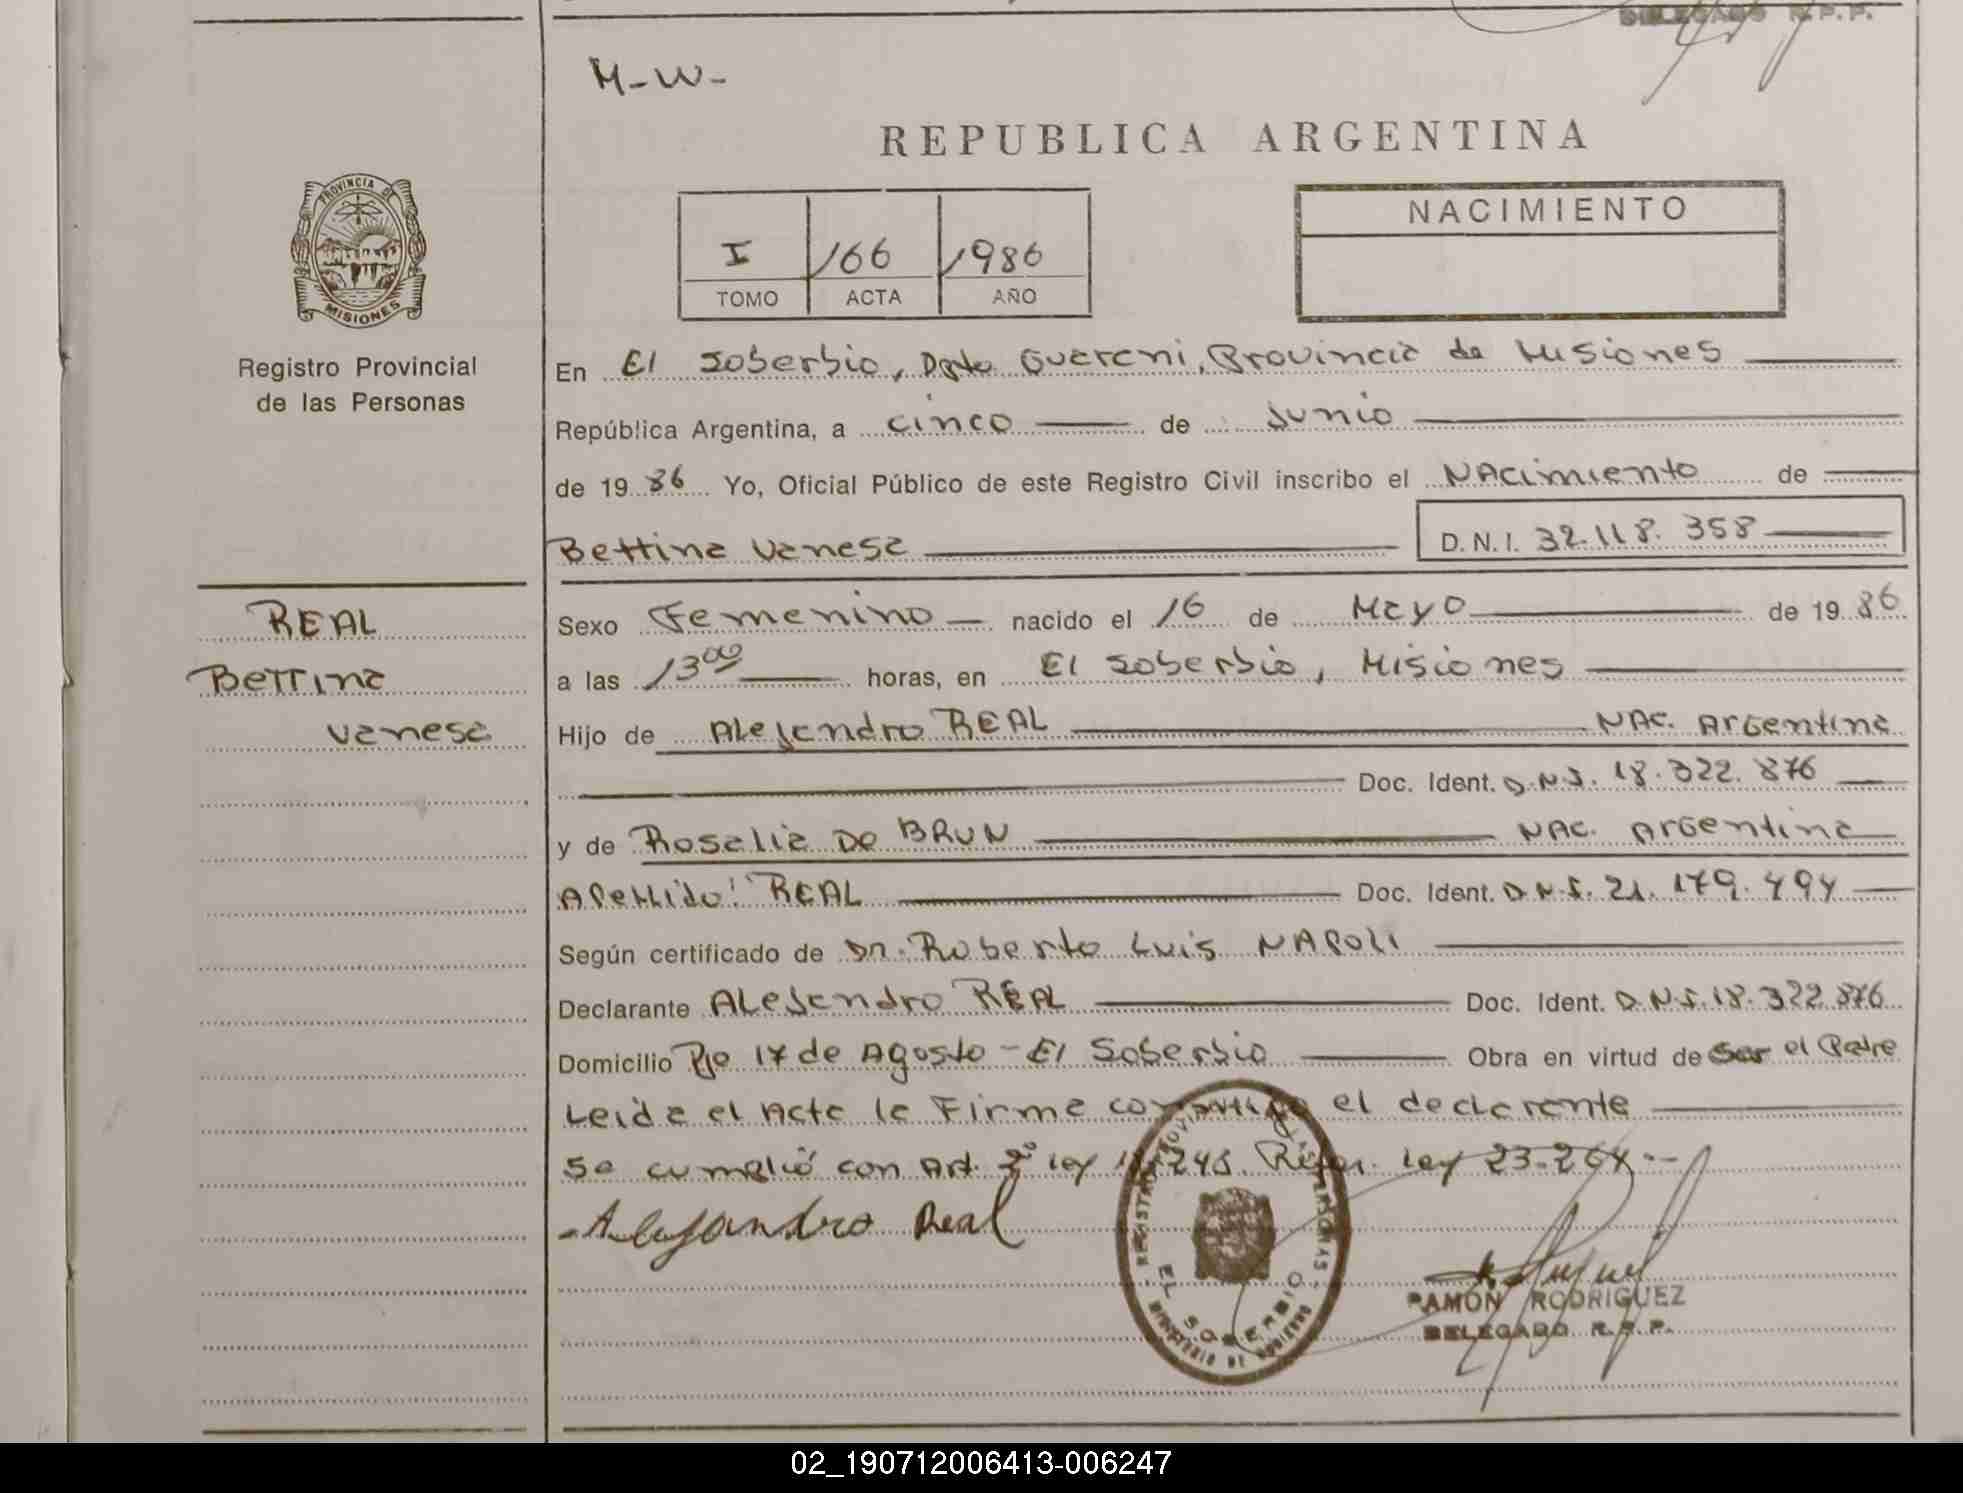 DELEGADO R.P.P.
M-W-
REPUBLICA ARGENTINA
PROVINCIA DE
MISIONES
I 166 1986
TOMO ACTA AÑO
NACIMIENTO
Registro Provincial
de las Personas
En El Soberbio, Dpto Guarani, Provincia de Misiones
República Argentina, a cinco de Junio
de 1986 Yo, Oficial Público de este Registro Civil inscribo el Nacimiento de
Bettina Vanesa D.N.I. 32.118.358
REAL
Bettina
Vanesa
Sexo Femenino nacido el 16 de Mayo de 1986
a las 13 00 horas, en El Soberbio, Misiones
Hijo de Alejandro REAL NAC. Argentina
Doc. Ident. D.N.I. 18.322.876
y de Rosalia De BRUN NAC. Argentina
Apellido: REAL Doc. Ident. D.N.I. 21.179.494
Según certificado de Dr. Roberto Luis NAPOLI
Declarante Alejandro REAL Doc. Ident. D.N.I. 18.322.876
Domicilio 17 de Agosto - El Soberbio Obra en virtud de Ser el Padre
Leida el Acta la Firma conmigo el declarante
Se cumplió con Art. 2º Ley 18.248. Refor. Ley 23-264--
Alejandro Real
EL SOBERBIO
MINISTERIO DE GOBIERNO
RAMÓN RODRIGUEZ
DELEGADO R.P.P.
02_190712006413-006247